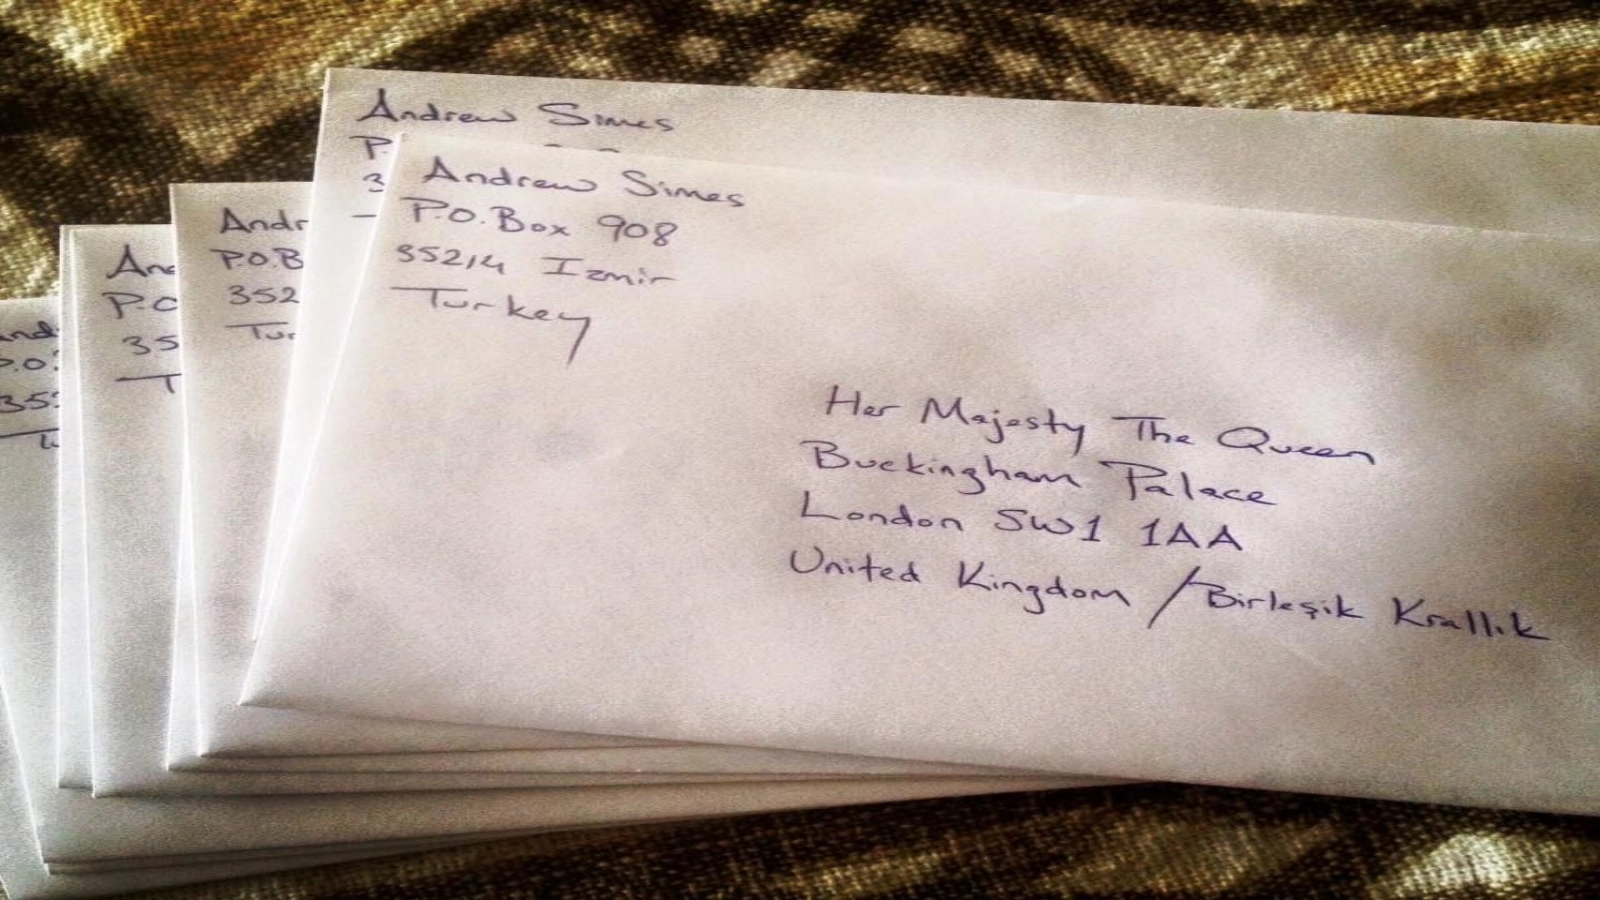 Andrew Simes
P.
3
Andrew Simes
P.O.Box 908
35214 Izmir
Turkey
Her Majesty The Queen
Buckingham Palace
London SW1 1AA
United Kingdom / Birleşik Krallık
Andr
P.O.B
352
Tur
And
P.O
35
T
and
P.O.
35